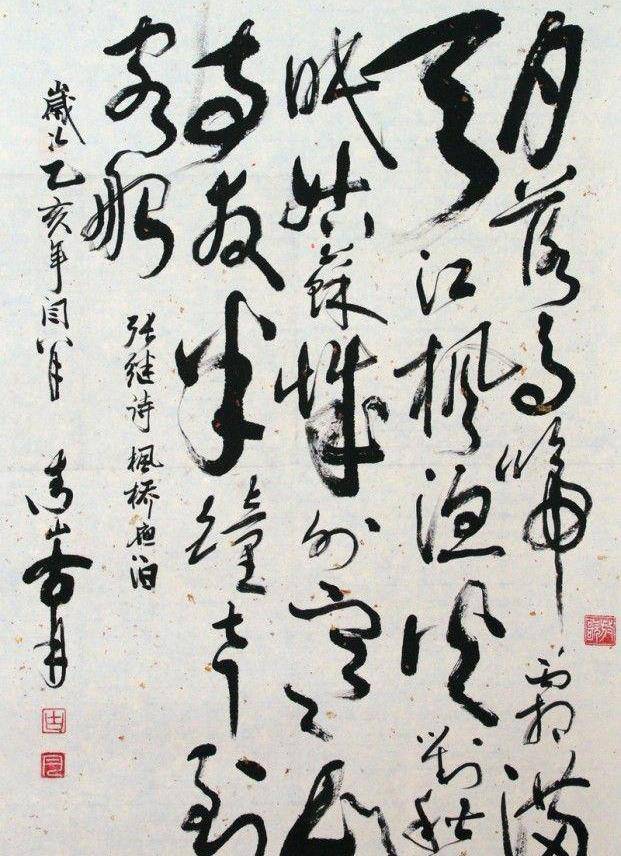 月落乌啼霜满
天江枫渔火对愁
眠姑蘇城外寒山
寺夜半鐘声到
客船
张继诗楓桥夜泊
歲次乙亥年闰八月 青山古月